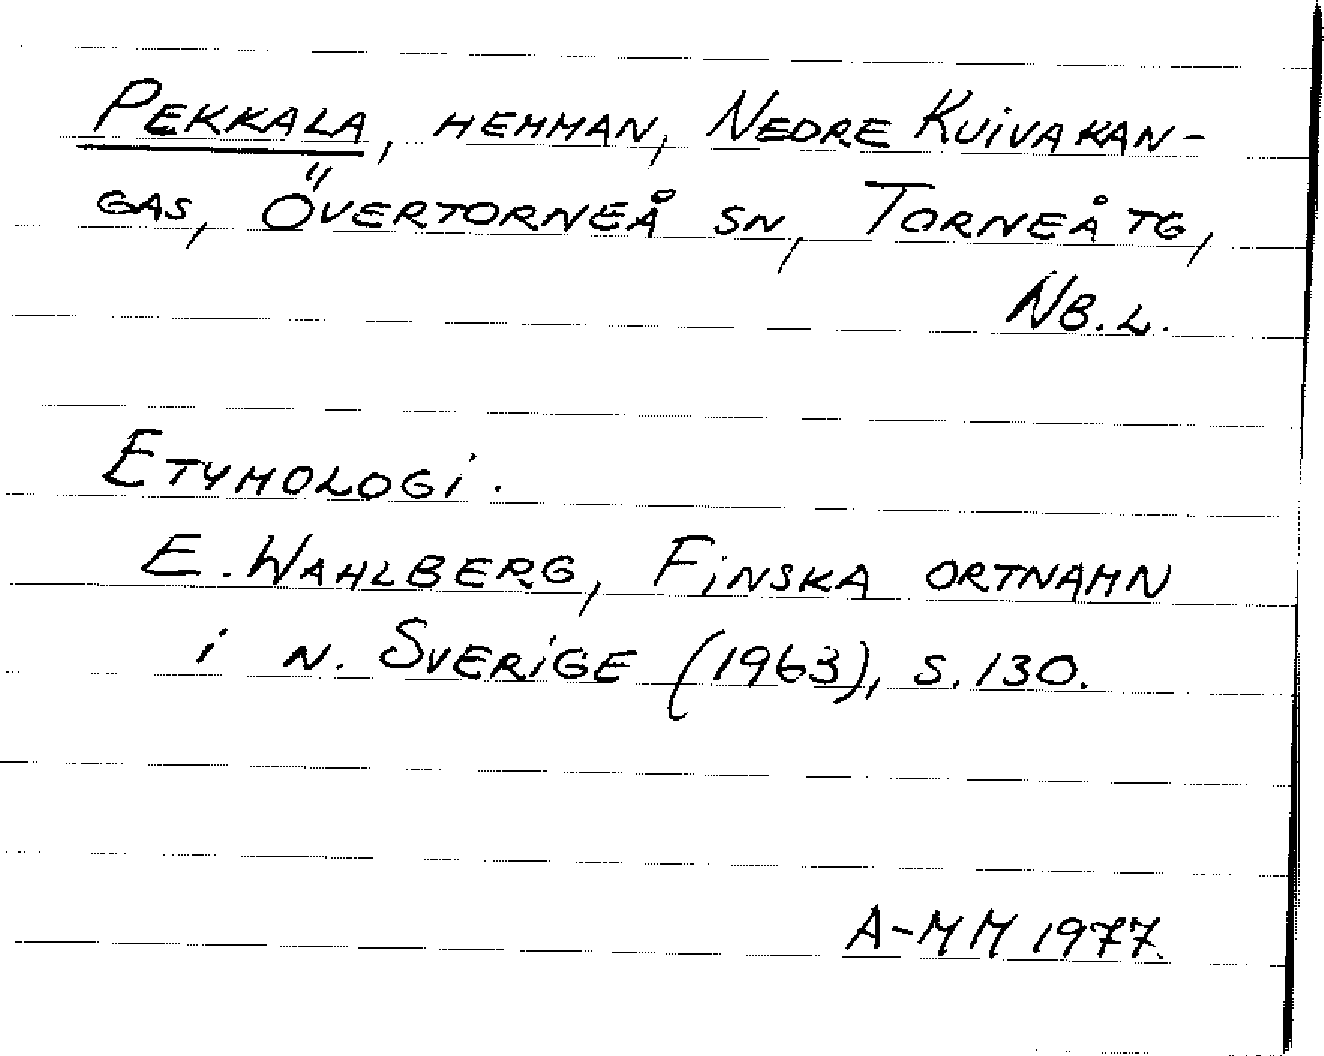 PEKKALA, HEMMAN, NEDRE KUIVAKAN-
GAS, ÖVERTORNEÅ SN, TORNEÅ TG,
NB.L.
ETYMOLOGI.
E. WAHLBERG, FINSKA ORTNAMN
i N. SVERIGE (1963), S. 130.
A-MM 1977.